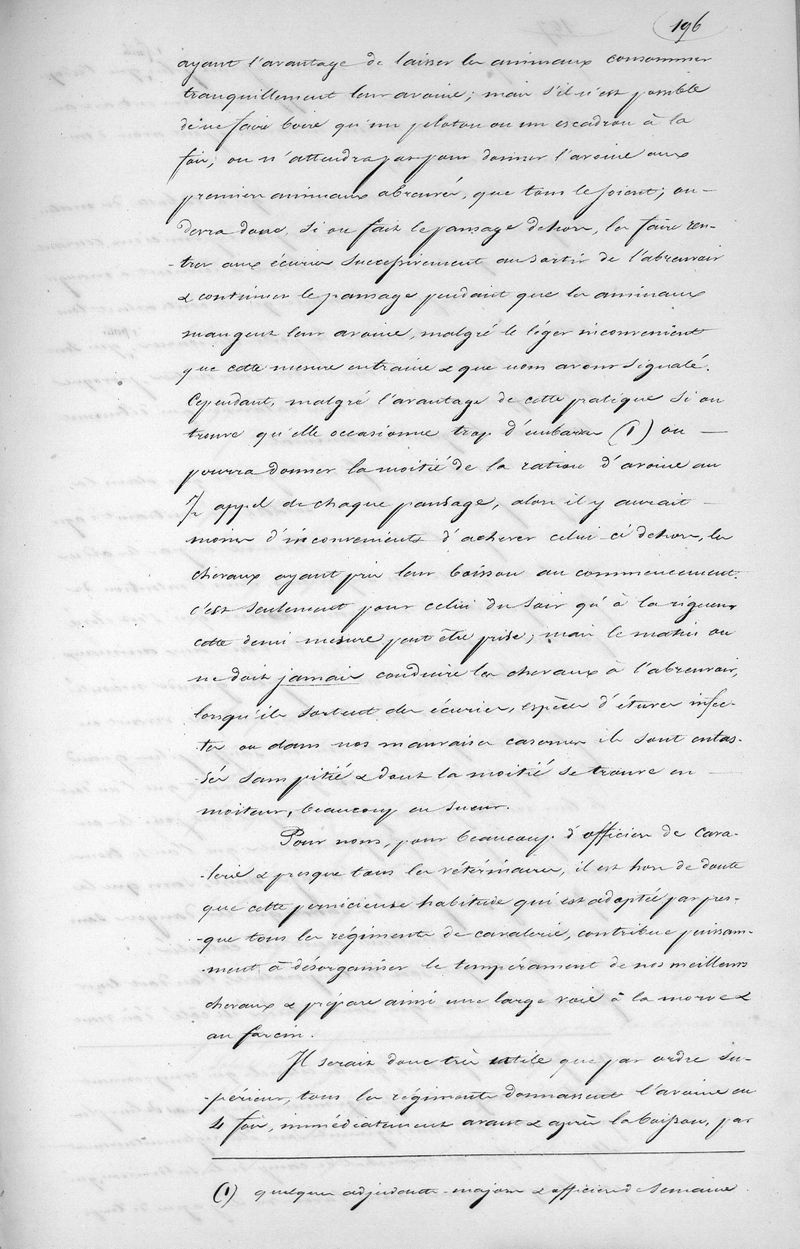 196
ayant l'avantage de laisser les animaux consommer
tranquillement leur avoine; mais s'il n'est possible
de ne faire boire qu'un peloton ou un escadron à la
fois; on n'attendra pas pour donner l'avoine aux
premiers animaux abreuvés, que tous le soient; on —
devra donc, si on fait le pansage dehors, les faire ren-
-trer aux écuries successivement au sortir de l'abreuvoir
& continuer le pansage pendant que les animaux
mangent leur avoine, malgré le léger inconvénient
que cette mesure entraine & que nous avons signalé.
Cependant, malgré l'avantage de cette pratique si on
trouve qu'elle occasionne trop d'embarras (1) on —
pourra donner la moitié de la ration d'avoine au
appel de chaque pansage, alors il y aurait —
moins d'inconvénients d'achever celui-ci dehors, les
chevaux ayant pris leur boisson au commencement.
c'est seulement pour celui du soir qu'à la rigueur
cette demi-mesure peut être prise; mais le matin on
ne doit jamais conduire les chevaux à l'abreuvoir,
lorsqu'ils sortent des écuries, espèces d'étuves infec-
-tes où dans nos mauvaises casernes ils sont entas-
-sés sans pitié & dont la moitié se trouve en —
moiteur, beaucoup en sueur.
Pour nous, pour beaucoup d'officiers de cava-
-lerie & presque tous les vétérinaires, il est hors de doute
que cette pernicieuse habitude qui est adoptée par pres-
-que tous les régiments de cavalerie, contribue puissam-
-ment à désorganiser le tempérament de nos meilleurs
chevaux & prépare ainsi une large voie à la morve &
au farcin.
Il serait donc très utile que par ordre su-
-périeur, tous les régiments donnassent l'avoine en
4 fois, immédiatement avant & après la boisson, par
(1) quelques adjudants-majors & officiers de semaine